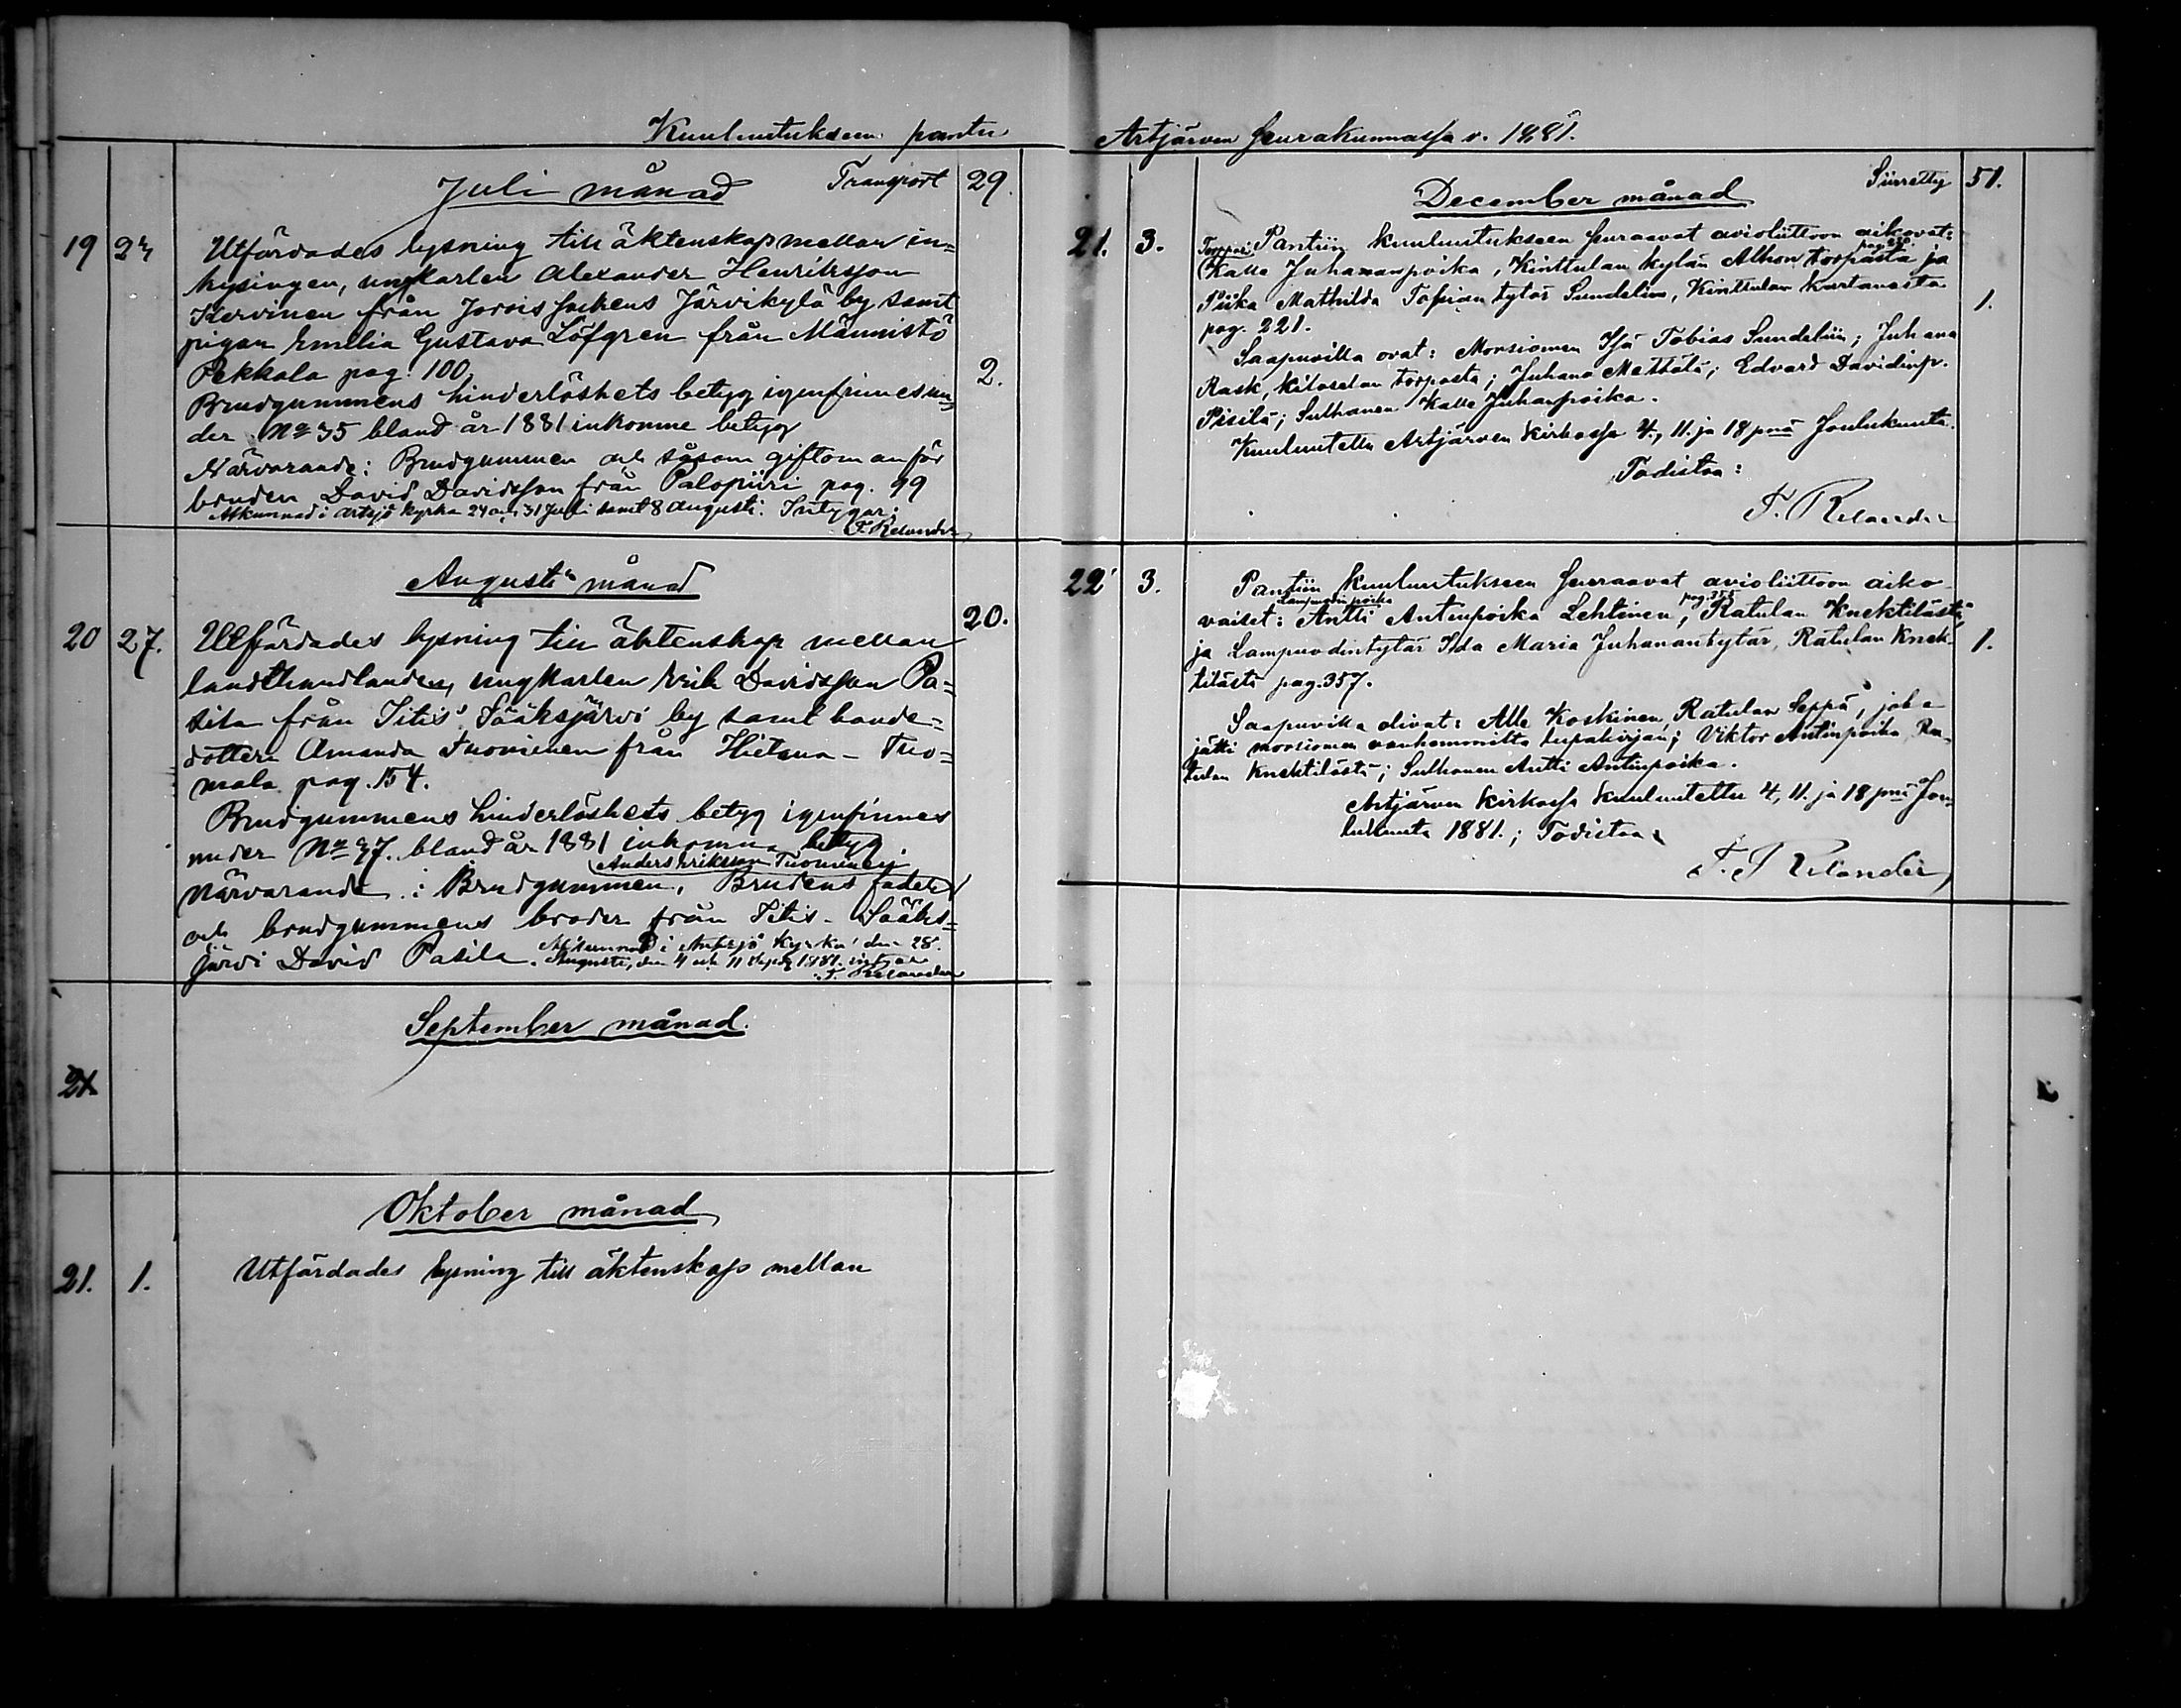 Kuulutukseen pantu
Juli månad Transport 29.
19 23 Utfärdades lysning till äktenskap mellan in=
hysingen, ungkarlen Alexander Henriksson
Kervinen från Jorois sockens Järvikylä by samt
pigan Emilia Gustava Löfgren från Männistö
Pekkala pag. 100. 2.
Brudgummens hinderlöshets betyg igenfinnes un=
der No 35 bland år 1881 inkomne betyg
Närvarande: Brudgummen och såsom giftoman för
bruden David Davidsson från Palopiiri pag. 99
Afkunnad i Artsjö kyrka 24 och 31 Juli samt 8 Augusti. Intygar:
F. Relander
Augusti månad
20 27. Utfärdades lysning till äktenskap mellan 20.
landthandlanden, ungkarlen Erik Davidsson Pa=
sila från Itis Sääksjärvi by samt bonde=
dottern Amanda Tuominen från Hietana - Tuo=
mala pag. 154.
Brudgummens hinderlöshets betyg igenfinnes
under No 37. bland år 1881 inkomna betyg.
Anders Eriksson Tuominen
Närvarande: Brudgummen, Brudens fader
och brudgummens broder från Itis - Sääks=
järvi David Pasila. Afkunnad i Artsjö kyrka den 28.
Augusti, den 4 och 11 Sept. 1881. intygar
F. Relander
September månad.
21
Oktober månad
21. 1. Utfärdades lysning till äktenskap mellan
Artjärven seurakunnassa v. 1881.
December månad Siirretty 51.
21. 3. Pantiin kuulutukseen seuraavat avioliittoon aikovat:
Torppari Kalle Juhananpoika, Kinttulan kylän Alhon torpasta ja
Piika Mathilda Tobiantytär Sundelin, Kinttulan kartanosta 1.
pag. 221.
Saapuvilla ovat: Morsiomen Isä Tobias Sundelin; Juhana
Rask, Kitoselan torpasta; Juhana Mettälä; Edvard Davidinp.
Pisilä; Sulhanen Kalle Juhanpoika.
Kuulutettu Artjärven kirkossa 4., 11. ja 18 pnä Joulukuuta.
Todistaa:
F. Relander
22 3. Pantiin kuulutukseen seuraavat avioliittoon aiko-
Lampuodinpoika
vaiset: Antti Antinpoika Lehtinen, Ratulan Knektilästä
ja Lampuodintytär Ida Maria Juhanantytär, Ratulan Knek- 1.
tilästä pag. 357.
Saapuvilla olivat: Alle Koskinen, Ratulan Seppä, joka
jätti morsiomen vanhemmilta lupakirjan; Viktor Antinpoika Ra-
tulan Knektilästä; Sulhanen Antti Antinpoika.
Artjärven kirkossa kuulutettu 4, 11. ja 18 pnä Jou-
lukuuta 1881.; Todistaa
F. Relander